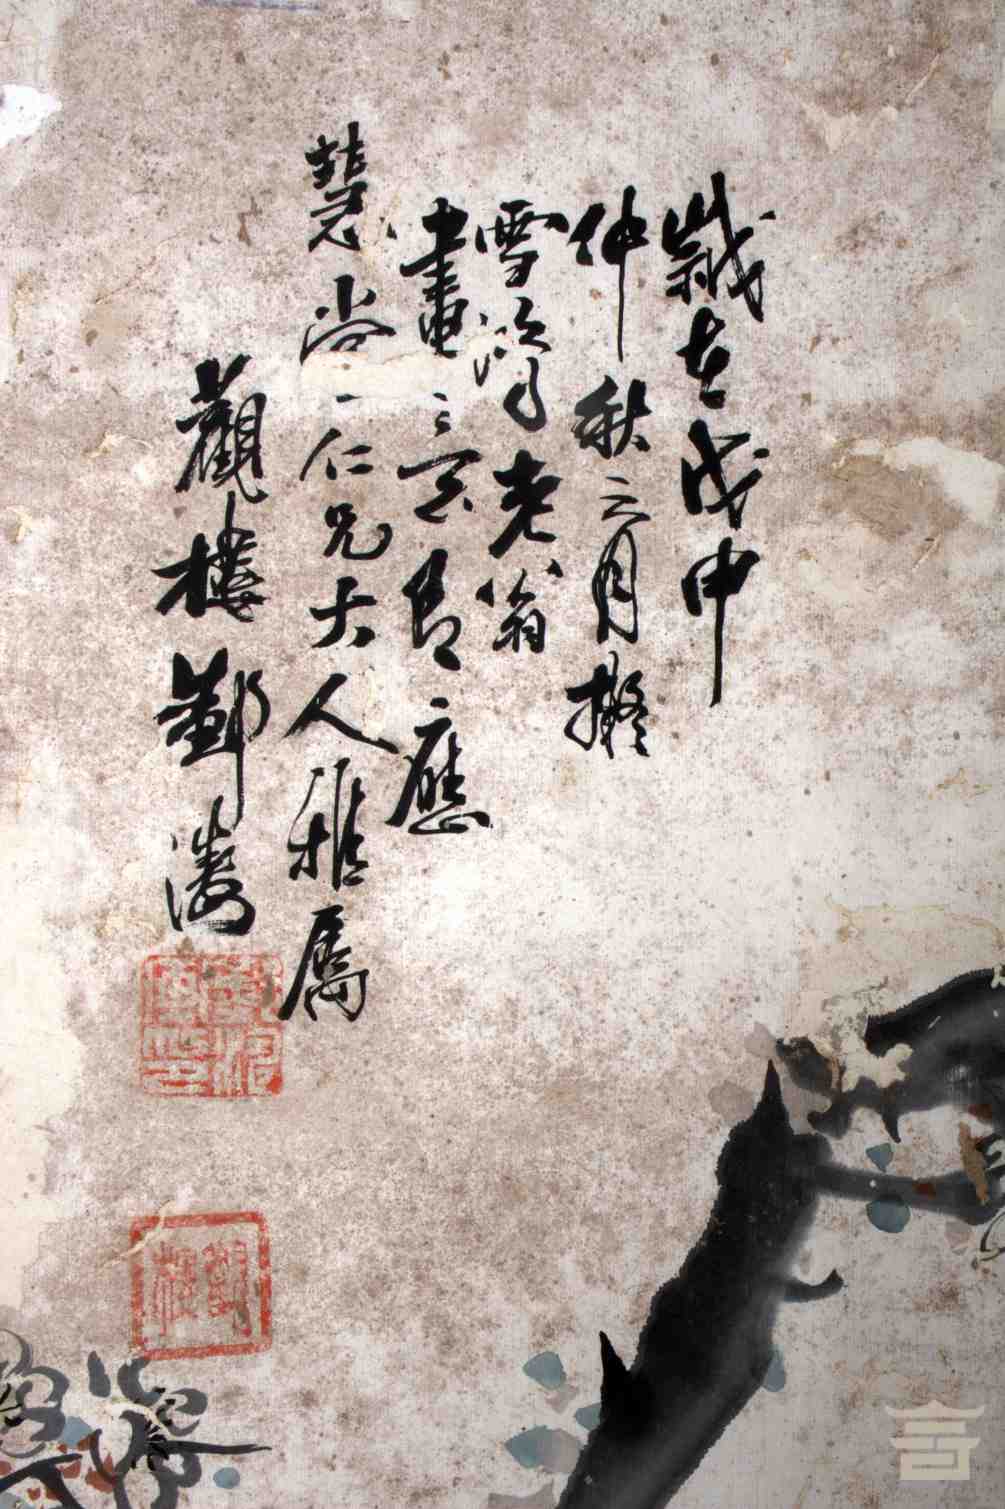 歲在戊申
仲秋之月擬
雪 老翁
畫之意即應
慧 仁兄大人雅屬
觀樓鄭